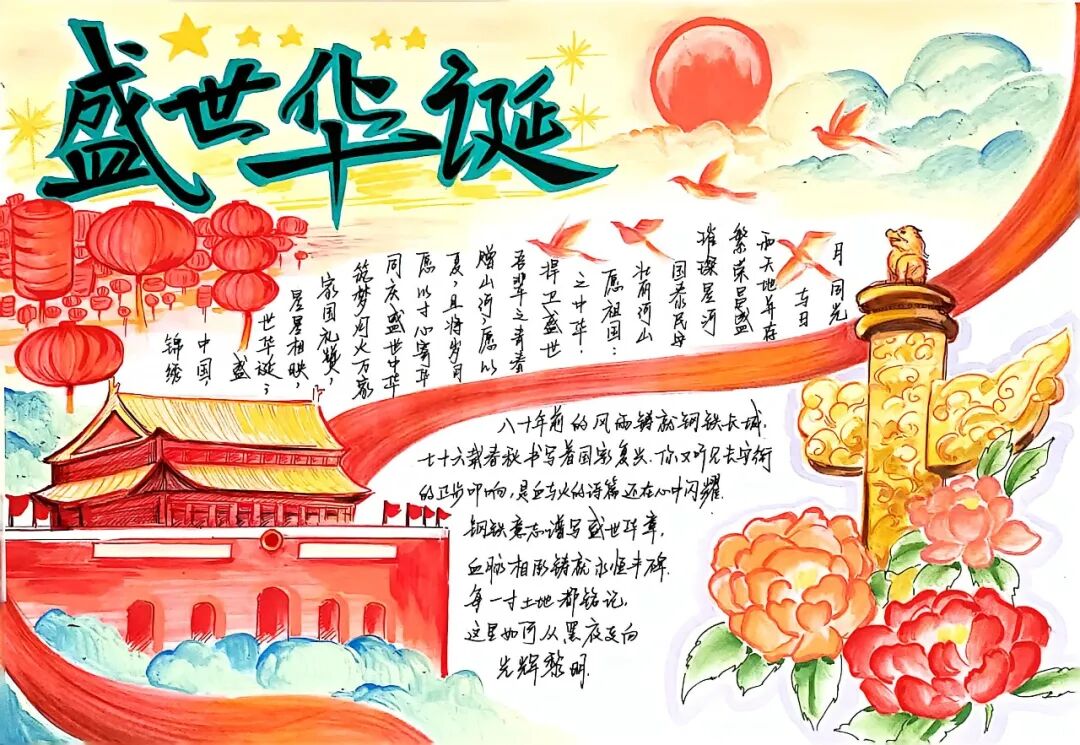 盛世华诞
锦绣
中国,
盛
世华诞;
星星相映,
家国礼赞,
筑梦火万家
同庆盛世中华
愿以寸心寄华
夏,且将岁月
赠山河,愿以
吾辈之青春
捍卫盛世
之中华!
愿祖国:
壮丽河山
国泰民安
璀璨星河
繁荣昌盛
而天地并存
与日
月同光
八十年前的风雨铸就钢铁长城,
七十六载春秋书写着国家复兴.你又听见长安街
的正步叩响,是血与火的诗篇还在心中闪耀.
钢铁意志谱写盛世华章,
血脉相铸就永恒丰碑.
每一寸土地都铭记,
这里如何从黑夜迈向
光辉黎明.